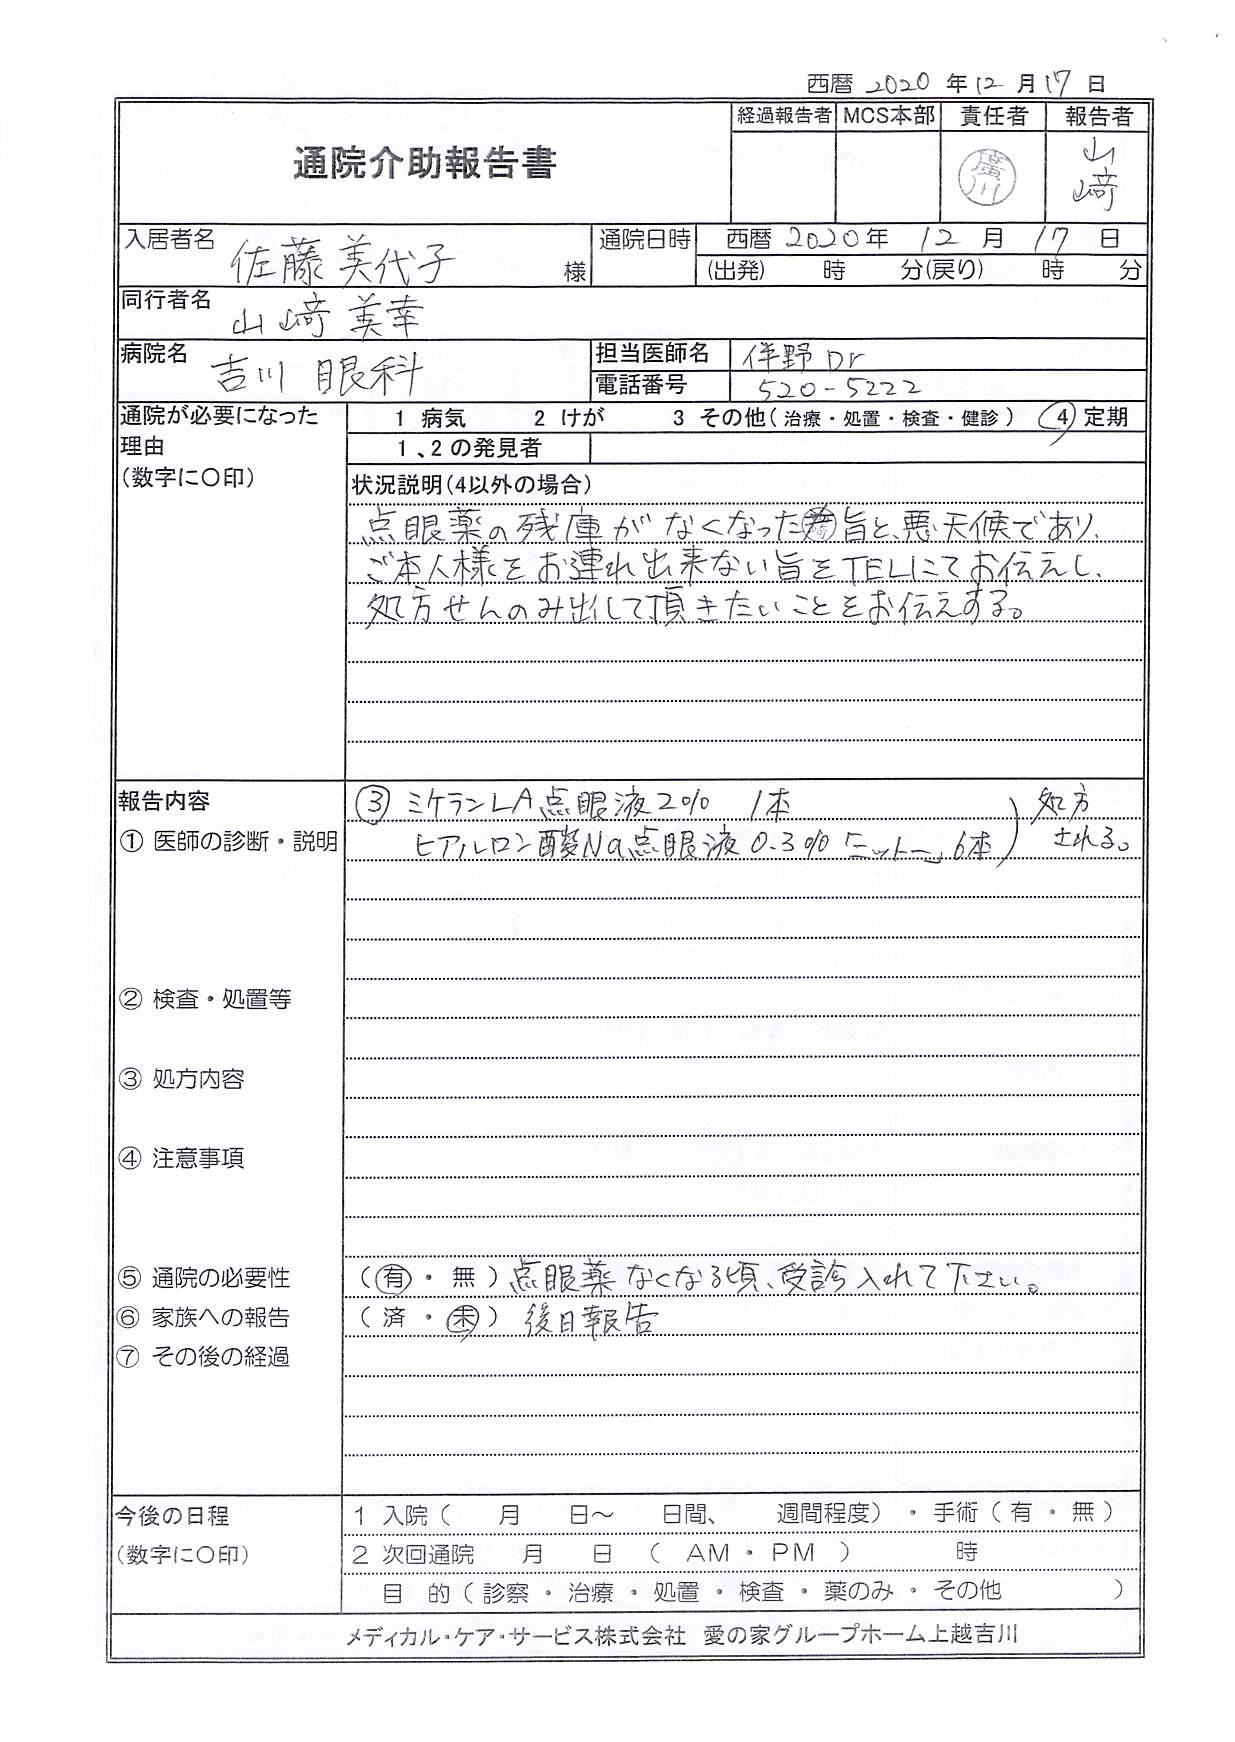 西暦 2020 年 12 月 17 日
通院介助報告書
経過報告者 MCS本部 責任者 報告者
廣川
山﨑
入居者名 佐藤 美代子 様
通院日時 西暦 2020年 12 月 17 日
(出発) 時 分(戻り) 時 分
同行者名 山﨑 美幸
病院名 吉川 眼科
担当医師名 伴野 Dr
電話番号 520-5222
通院が必要になった理由
(数字に〇印)
1 病気 2 けが 3 その他(治療・処置・検査・健診) 4 定期
1、2の発見者
状況説明(4以外の場合)
点眼薬の残庫がなくなった旨と、悪天候であり、
ご本人様をお連れ出来ない旨をTELにてお伝えし、
処方せんのみ出して頂きたいことをお伝えする。
報告内容
③ ミケランLA点眼液2% 1本
ヒアルロン酸Na点眼液0.3%「ニットー」6本
処方される。
① 医師の診断・説明
② 検査・処置等
③ 処方内容
④ 注意事項
⑤ 通院の必要性 (有・無) 点眼薬なくなる頃、受診入れて下さい。
⑥ 家族への報告 (済・未) 後日報告
⑦ その後の経過
今後の日程
(数字に〇印)
1 入院( 月 日～ 日間、 週間程度)・手術(有・無)
2 次回通院 月 日 (AM・PM) 時
目 的(診察・治療・処置・検査・薬のみ・その他 )
メディカル・ケア・サービス株式会社 愛の家グループホーム上越吉川